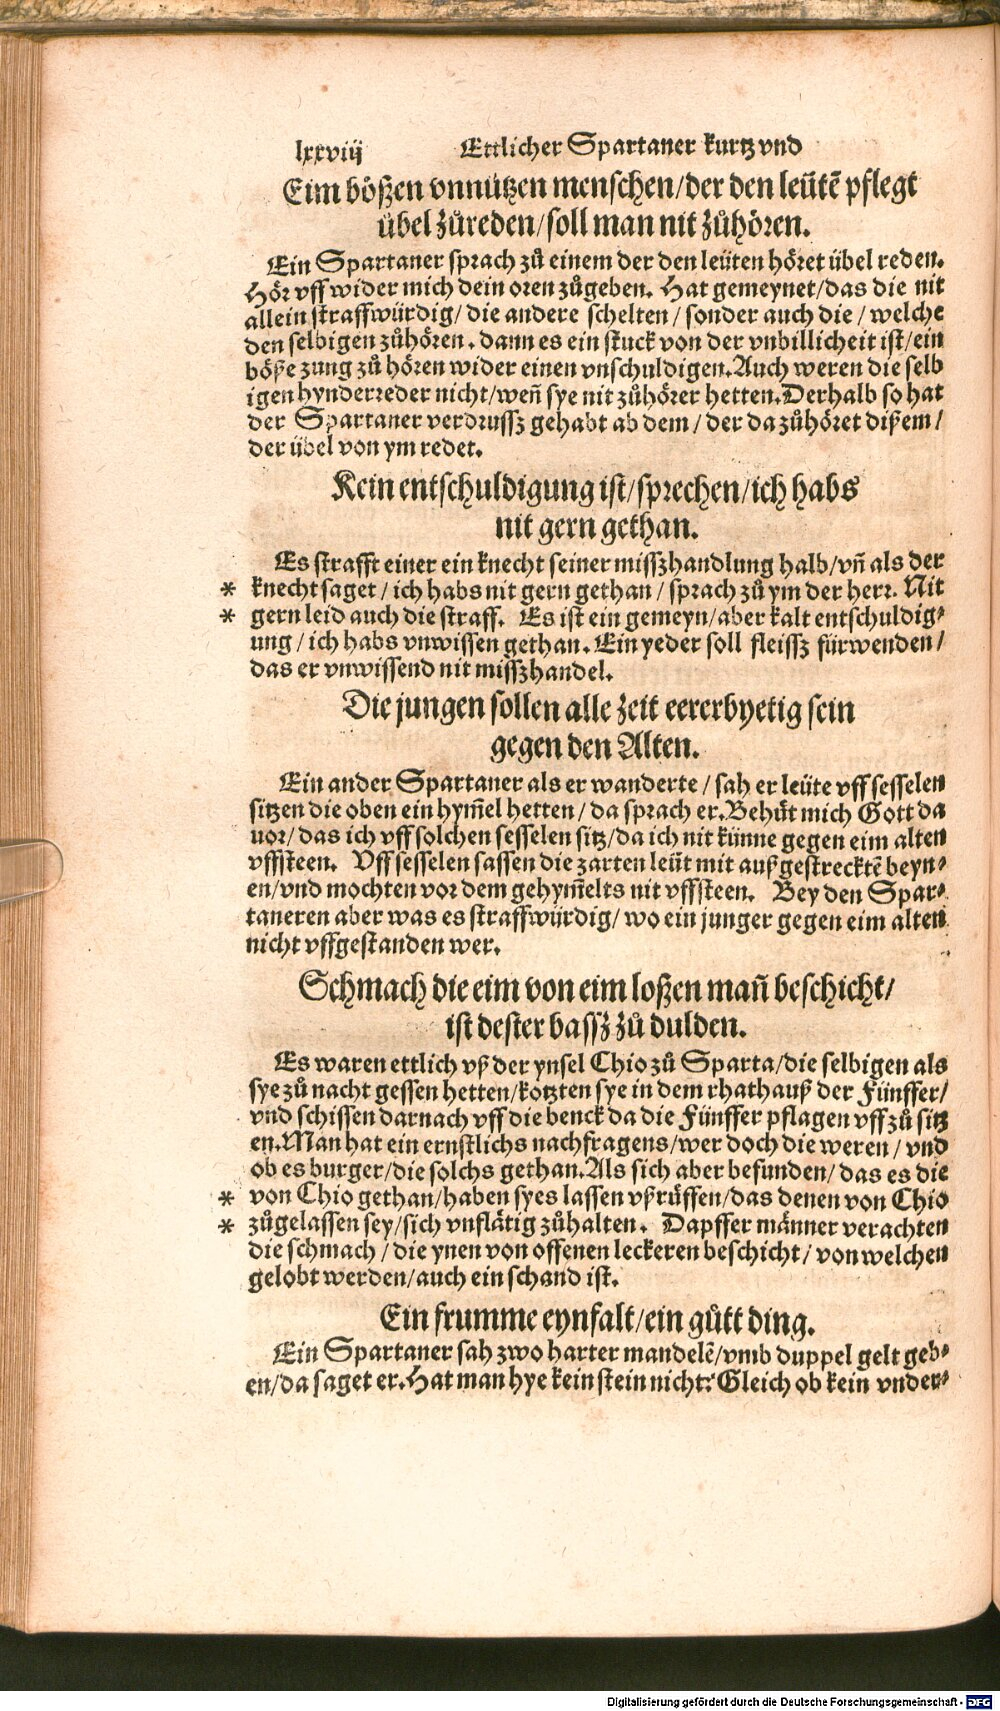 lxxviij Ettlicher Spartaner kurtz vnd
Eim bößen vnnützen menschen/der den leütē pflegt
übel zůreden/soll man nit zůhören.
Ein Spartaner sprach zů einem der den leüten höret übel reden.
Hör vff wider mich dein oren zůgeben. Hat gemeynet/das die nit
allein straffwürdig/ die andere schelten / sonder auch die / welche
den selbigen zůhören. dann es ein stuck von der vnbillicheit ist/ein
böße zung zů hören wider einen vnschuldigen.Auch weren die selb
igen hynderreder nicht/weñ sye nit zůhörer hetten.Derhalb so hat
der Spartaner verdrussz gehabt ab dem / der da zůhöret dißem/
der übel von ym redet.
Kein entschuldigung ist/sprechen/ich habs
nit gern gethan.
Es strafft einer ein knecht seiner misszhandlung halb/vñ als der
* knecht saget / ich habs nit gern gethan / sprach zů ym der herr. Nit
* gern leid auch die straff. Es ist ein gemeyn/aber kalt entschuldig⸗
ung / ich habs vnwissen gethan. Ein yeder soll fleissz fürwenden/
das er vnwissend nit misszhandel.
Die jungen sollen alle zeit eererbyetig sein
gegen den Alten.
Ein ander Spartaner als er wanderte / sah er leüte vff sesselen
sitzen die oben ein hym̄el hetten / da sprach er.Behüt mich Gott da
uor/ das ich vff solchen sesselen sitz/da ich nit künne gegen eim alten
vffsteen. Vff sesselen sassen die zarten leüt mit außgestrecktē beyn⸗
en/vnd mochten vor dem gehym̄elts nit vffsteen. Bey den Spar⸗
taneren aber was es straffwürdig/ wo ein junger gegen eim alten
nicht vffgestanden wer.
Schmach die eim von eim loßen mañ beschicht/
ist dester bassz zů dulden.
Es waren ettlich vß der ynsel Chio zů Sparta/die selbigen als
sye zů nacht gessen hetten/kotzten sye in dem rhathauß der Fünffer/
vnd schissen darnach vff die benck da die Fünffer pflagen vff zů sitz
en.Man hat ein ernstlichs nachfragens/wer doch die weren / vnd
ob es burger/die solchs gethan.Als sich aber befunden/ das es die
* von Chio gethan/haben syes lassen vßrüffen/das denen von Chio
* zůgelassen sey/sich vnflätig zůhalten. Dapffer männer verachten
die schmach / die ynen von offenen leckeren beschicht/ von welchen
gelobt werden/auch ein schand ist.
Ein frumme eynfalt/ein gůtt ding.
Ein Spartaner sah zwo harter mandelē/vmb duppel gelt geb⸗
en/da saget er.Hat man hye kein stein nicht? Gleich ob kein vnder⸗
Digitalisierung gefördert durch die Deutsche Forschungsgemeinschaft - DFG